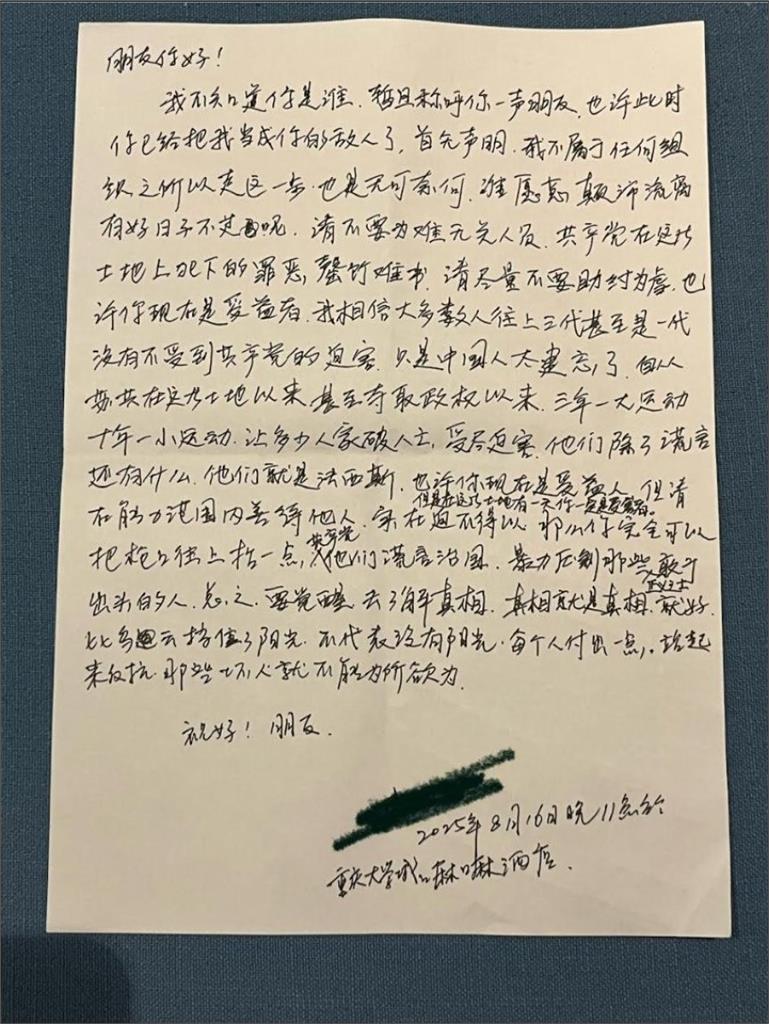 朋友你好！
我不知道你是谁、暂且称呼你一声朋友，也许此时
你已给把我当成你的敌人了，首先声明、我不属于任何组
织之所以走这一步、也是无可奈何、谁愿意颠沛流离
有好日子不过呢、请不要为难无关人员、共产党在这片
土地上犯下的罪恶，罄竹难书、请尽量不要助纣为虐、也
许你现在是受益者、我相信大多数人往上三代甚至是一代
没有不受到共产党的迫害、只是中国人太健忘了、自从
共在这片土地以来、甚至夺取政权以来、三年一大运动
十年一小运动、让多少人家破人亡，受尽迫害、他们除了谎言
还有什么、他们就是法西斯、也许你现在是受益人、但请
但是在这片土地有一天你一定是受害者。
在能力范围内善待他人、实在迫不得以、那么你完全可以
共产党
把枪口往上抬一点，他们谎言治国、暴力压制那些敢于
正义之士
出头的人、总之、要觉醒、去了解真相、真相就是真相、就好
比乌云挡住了阳光、不代表没有阳光、每个人付出一点，站起
来反抗、那些坏人就不能为所欲为、
祝好！朋友、
2025年8月16日晚11点於
重庆大学城 酒店、